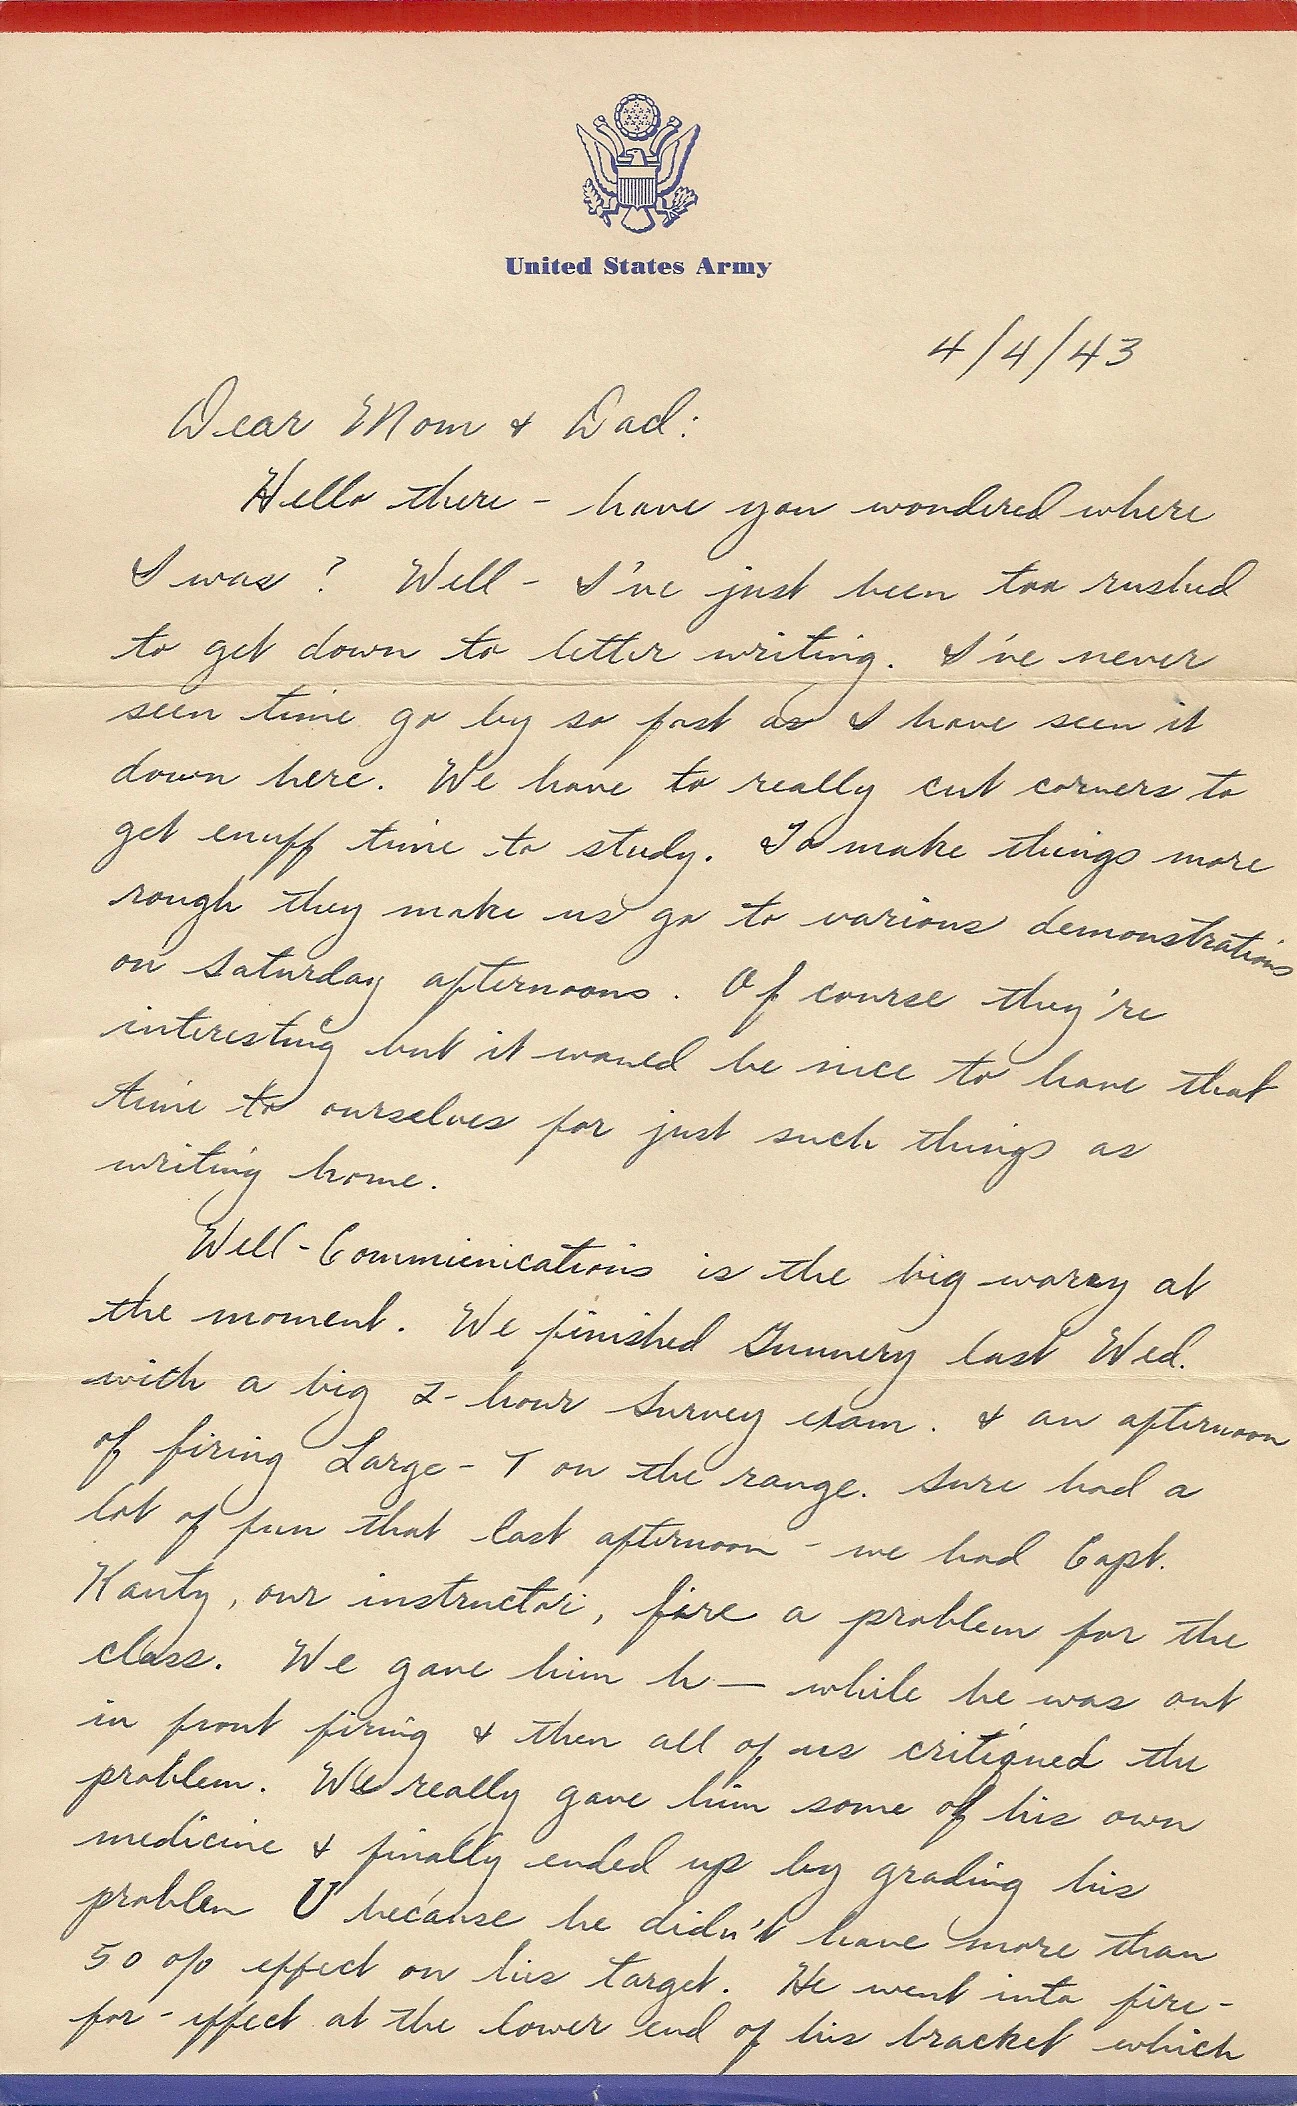 United States Army
4/4/43
Dear Mom & Dad:
Hello there - have you wondered where
I was? Well - I've just been too rushed
to get down to letter writing. I've never
seen time go by so fast as I have seen it
down here. We have to really cut corners to
get enuff time to study. To make things more
rough they make us go to various demonstrations
on Saturday afternoons. Of course they're
interesting but it would be nice to have that
time to ourselves for just such things as
writing home.
Well - Communications is the big worry at
the moment. We finished Gunnery last Wed.
with a big 2-hour Survey exam. & an afternoon
of firing Large-T on the range. Sure had a
lot of fun that last afternoon - we had Capt.
Kanty, our instructor, fire a problem for the
class. We gave him h— while he was out
in front firing & then all of us critiqued the
problem. We really gave him some of his own
medicine & finally ended up by grading his
problem U because he didn't have more than
50 o/o effect on his target. He went into fire-
for-effect at the lower end of his bracket which